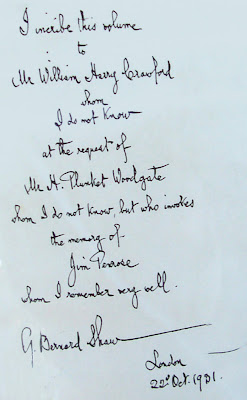 I inscribe this volume
to
Mr William Harry Crawford
whom
I do not know
at the request of
Mr H. Plunket Woodgate
whom I do not know, but who invokes
the memory of
Jim Penrose
whom I remember very well.
G. Bernard Shaw
London
22nd Oct. 1901.